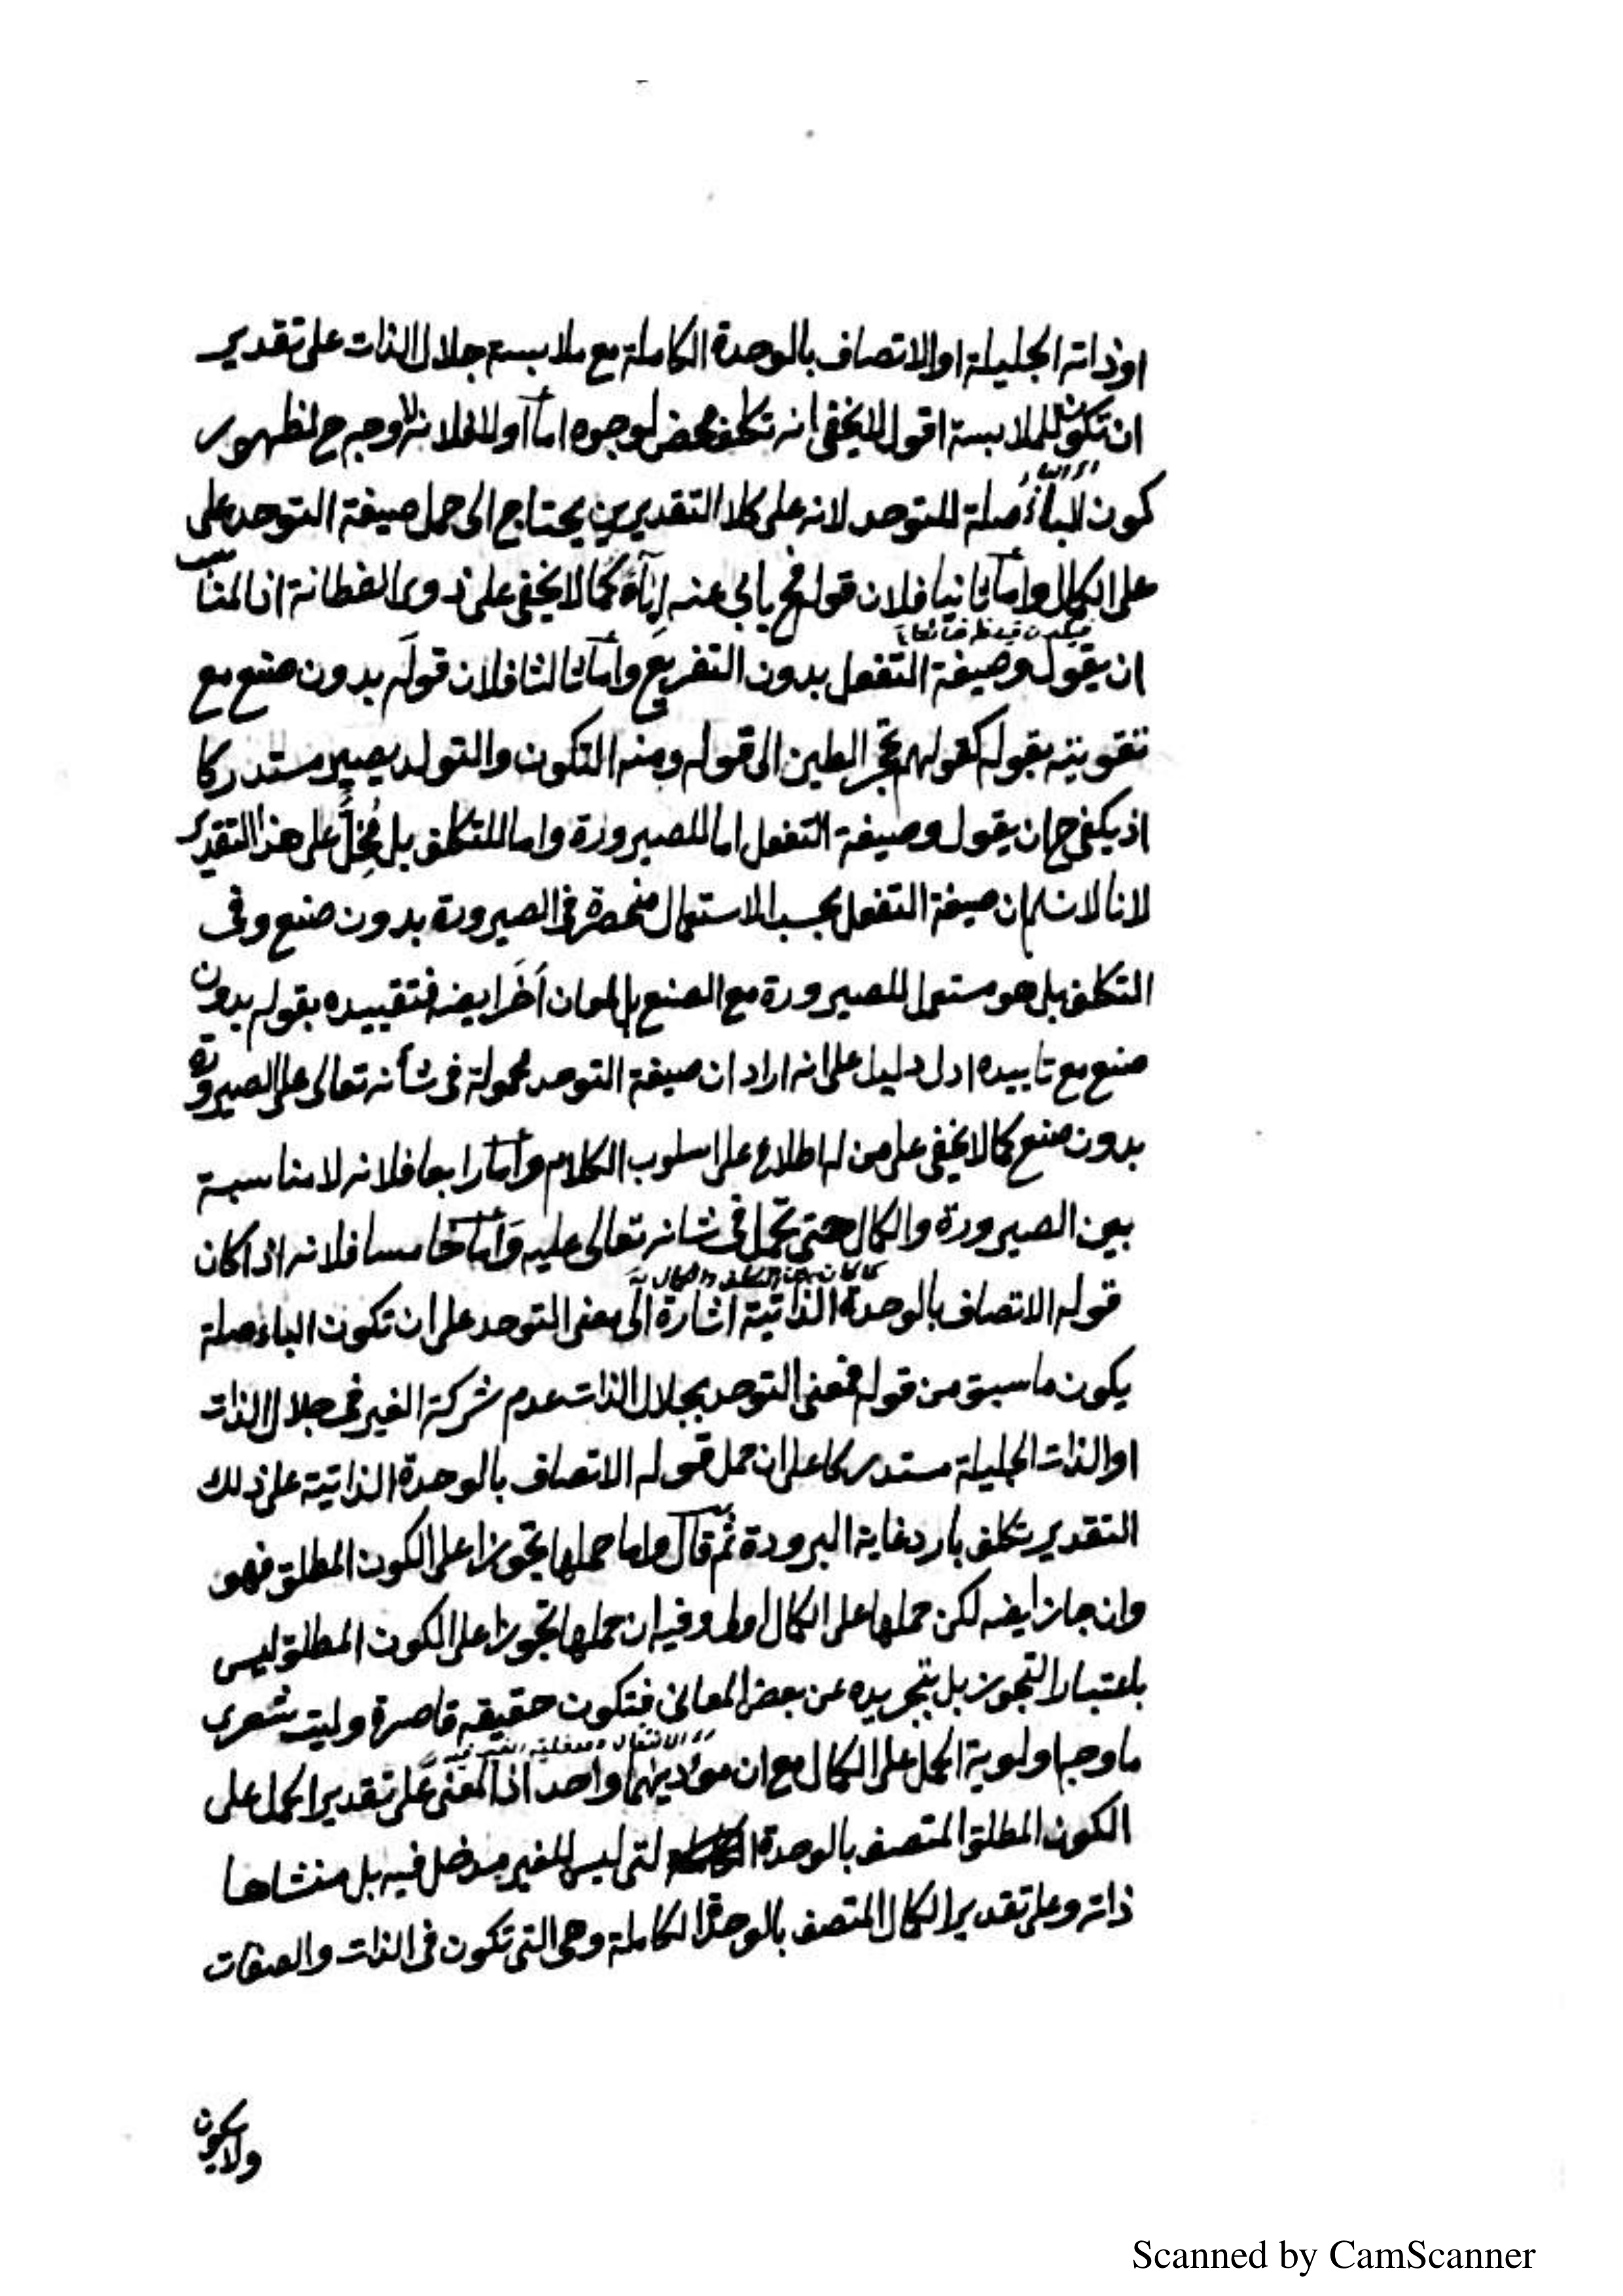 او ذاته الجليلة او الاتصاف بالوحدة الكاملة مع ملابسة جلال الذات على تقدير
ان تكون للملابسة اقول لا يخفى انه تكلف محض لوجوه اما اولا فلانه لا وجه ح لظهور
كون الباء صلة للتوحد لانه على كلا التقديرين يحتاج الى حمل صيغة التوحد على
على الكمال واما ثانيا فلان قوله فح يابى عنه إباءً كما لا يخفى على ذوى الفطانة اذ المناسب
ان يقول وصيغة التفعل بدون التفريع واما ثالثا فلان قوله بدون صنع مع
تقويته بقوله كقولهم تحجر الطين الى قوله ومنه التكون والتولد يصير مستدركا
اذ يكفى ح ان يقول وصيغة التفعل اما للصيرورة واما للتكلف بل مُخِلٌّ على هذا التقدير
لانا لا نسلم ان صيغة التفعل بحسب الاستعمال منحصرة فى الصيرورة بدون صنع وفى
التكلف بل هو مستعمل للصيرورة مع الصنع بل لمعان أخَر ايضه فتقييده بقوله بدون
صنع مع تاييده ادل دليل على انه اراد ان صيغة التوحد محمولة فى شأنه تعالى على الصيرورة
بدون صنع كما لا يخفى على من له اطلاع على اسلوب الكلام واما رابعا فلانه لا مناسبة
بين الصيرورة والكمال حتى تحمل فى شانه تعالى عليه وأما خامسا فلانه اذا كان
كما كان بين التكلف والكمال
قوله الاتصاف بالوحدة الذاتية اشارة الى معنى التوحد على ان تكون الباء صلة
يكون ما سبق من قوله فمعنى التوحد بجلال الذات عدم شركة الغير فى جلال الذات
او الذات الجليلة مستدركا على ان حمل قوله الاتصاف بالوحدة الذاتية على ذلك
التقدير تكلف بارد غاية البرودة ثم قال واما حملها تجوزا على الكون المطلق فهو
وان جاز ايضه لكن حملها على الكمال اولى وفيه ان حملها تجوزا على الكون المطلق ليس
باعتبار التجوز بل بتجريده عن بعض المعانى فتكون حقيقة قاصرة وليت شعرى
ما وجه اولوية الحمل على الكمال مع ان مؤديهما واحد اذ المعنى على تقدير الحمل على
الكون المطلق المتصف بالوحدة التى ليس للغير مدخل فيه بل منشاها
ذاته وعلى تقدير الكمال المتصف بالوحدة الكاملة وهى التى تكون فى الذات والصفات
ولا يكون
Scanned by CamScanner